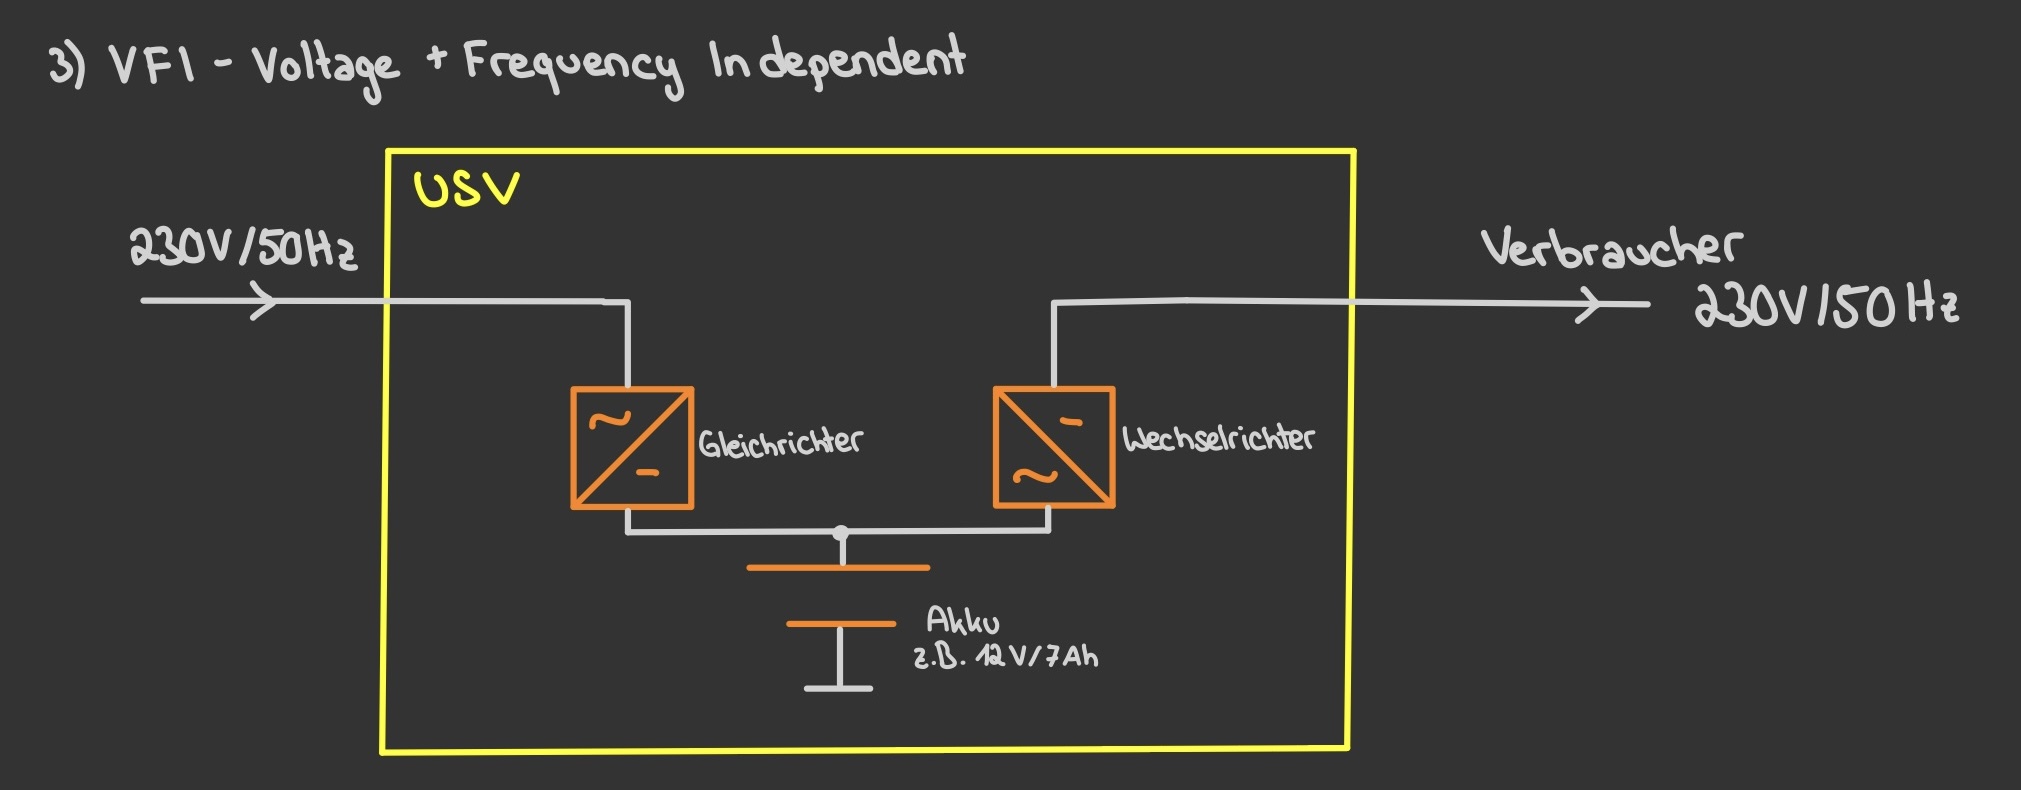 3) VFI - Voltage + Frequency Independent
USV
230V/50Hz
Verbraucher
230V/50Hz
~
-
Gleichrichter
-
~
Wechselrichter
Akku
z.B. 12V/7Ah